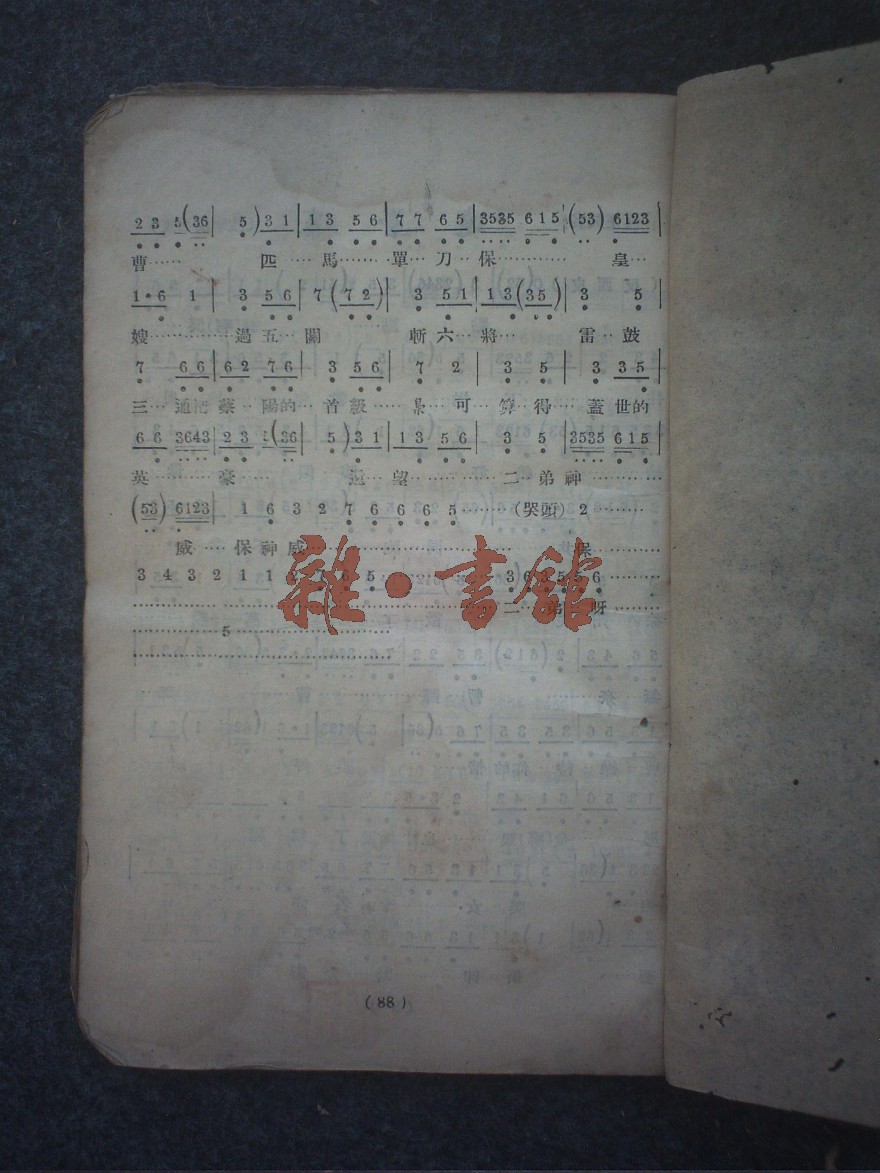 2 3 5(36| 5)3 1|1 3 5 6|7 7 6 5|3535 6 1 5|(53) 6123|
曹…… 匹……馬………單…刀…保………… 皇…
1·6 1|3 5 6|7(7 2)|3 5 1|1 3(35)|3 5
嫂…………過五…關 斬…六…將…… 雷…鼓
7 6 6|6 2 7 6|3 5 6|7 2|3 5|3 3 5
三…通把…蔡…陽的…首級……可…算…得…蓋世的
6 6 3643|2 3 (36|5)3 1|1 3 5 6|3 5|3535 6 1 5
英………豪…… …望………二…弟神…………
(53) 6123 1 6 3 2 7 6 6 6 5………(哭頭) 2………
威……保神威………保………
3 4 3 2 1 1 2 7 6 5 ………3 6 3 5 5 6………
………二…弟…呀………
5
雜·書館
(88)